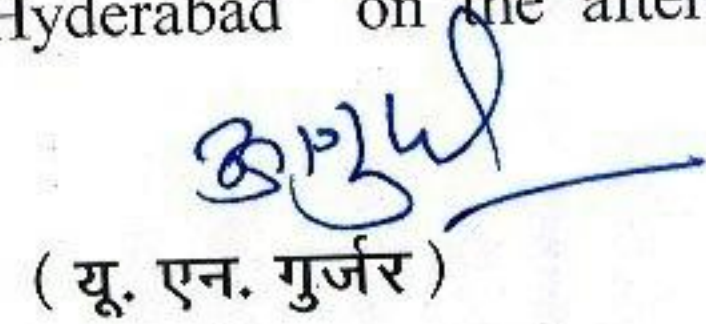 Hyderabad on the after
( यू. एन. गुर्जर )